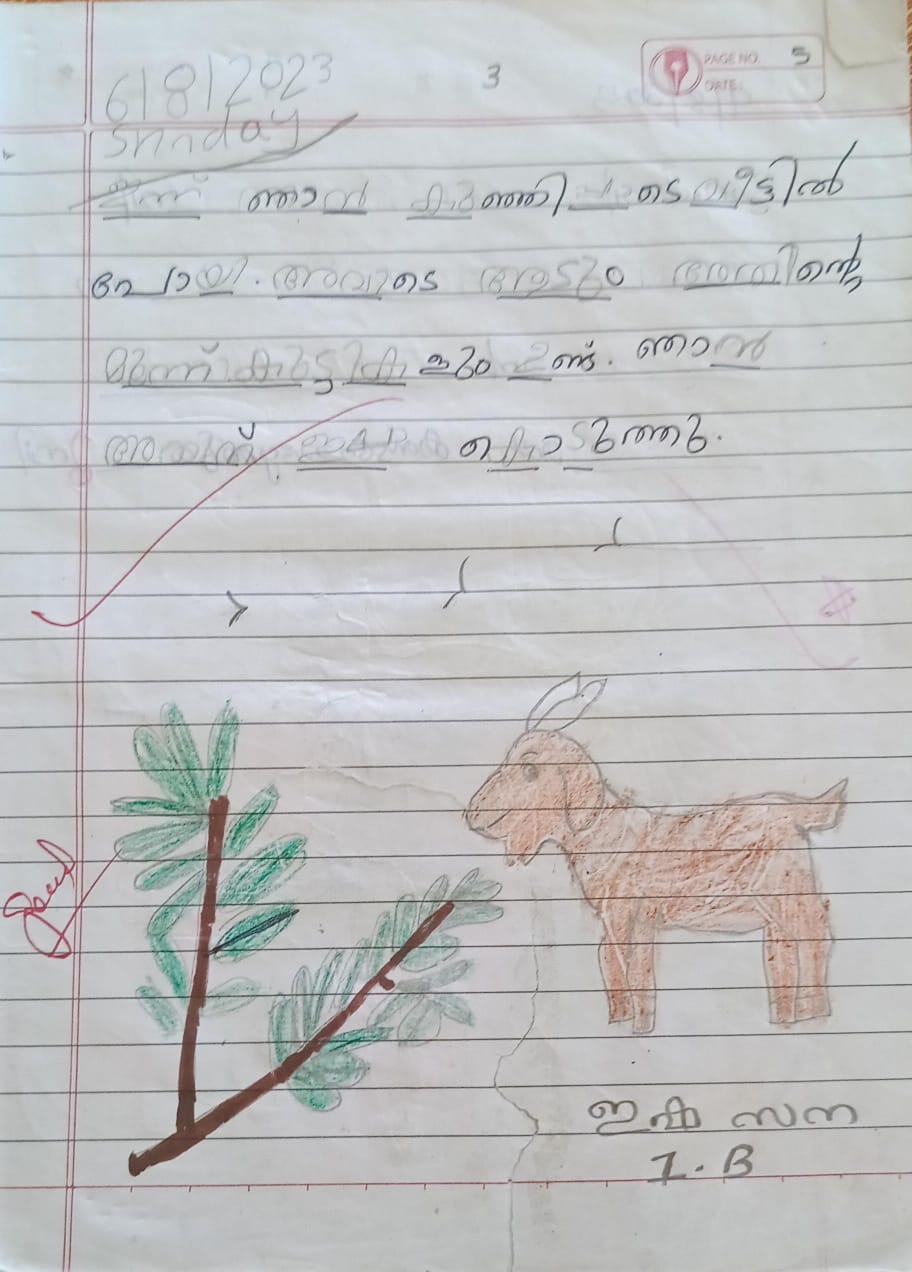 6/8/2023
3
PAGE NO. 5
DATE:
Sunday
ഇന്ന് ഞാൻ കുഞ്ഞിപ്പാടെ വീട്ടിൽ
പോയി. അവിടെ ആടും അതിന്റെ
മൂന്ന് കുട്ടികളും ഉണ്ട്. ഞാൻ
അതിന് കൊടുത്തു.
ഇഷ സന
1. B